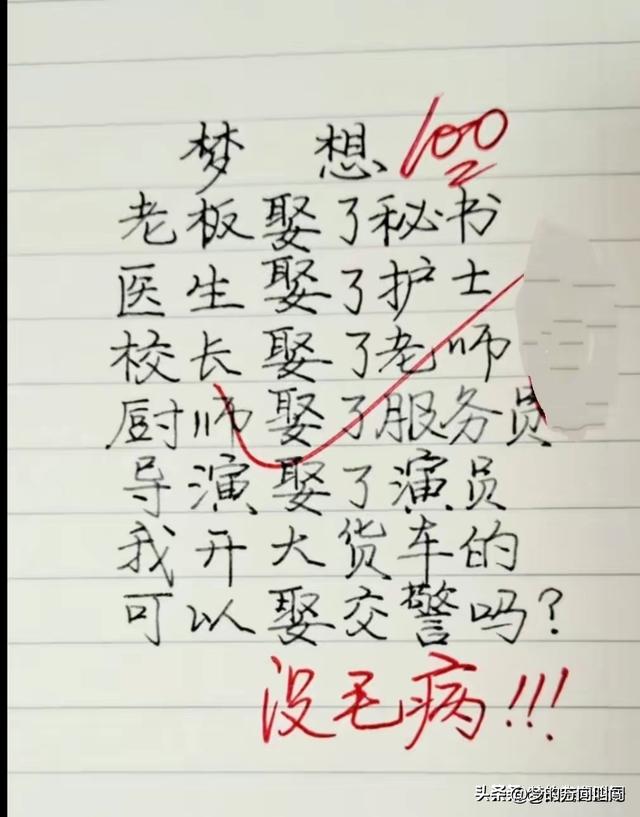 梦想 100
老板娶了秘书
医生娶了护士
校长娶了老师
厨师娶了服务员
导演娶了演员
我开大货车的
可以娶交警吗?
没毛病!!!